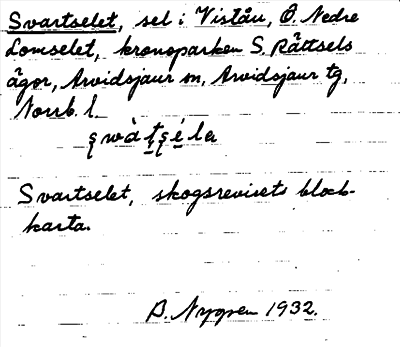 Svartselet, sel i Viståu, Ö. Nedre
Lomselet, kronoparken S. Rättsels
ägor, Arvidsjaur sn, Arvidsjaur tg,
Norrb. l.
Svartselet, skogsrevisets block-
karta.
B. Nygren 1932.